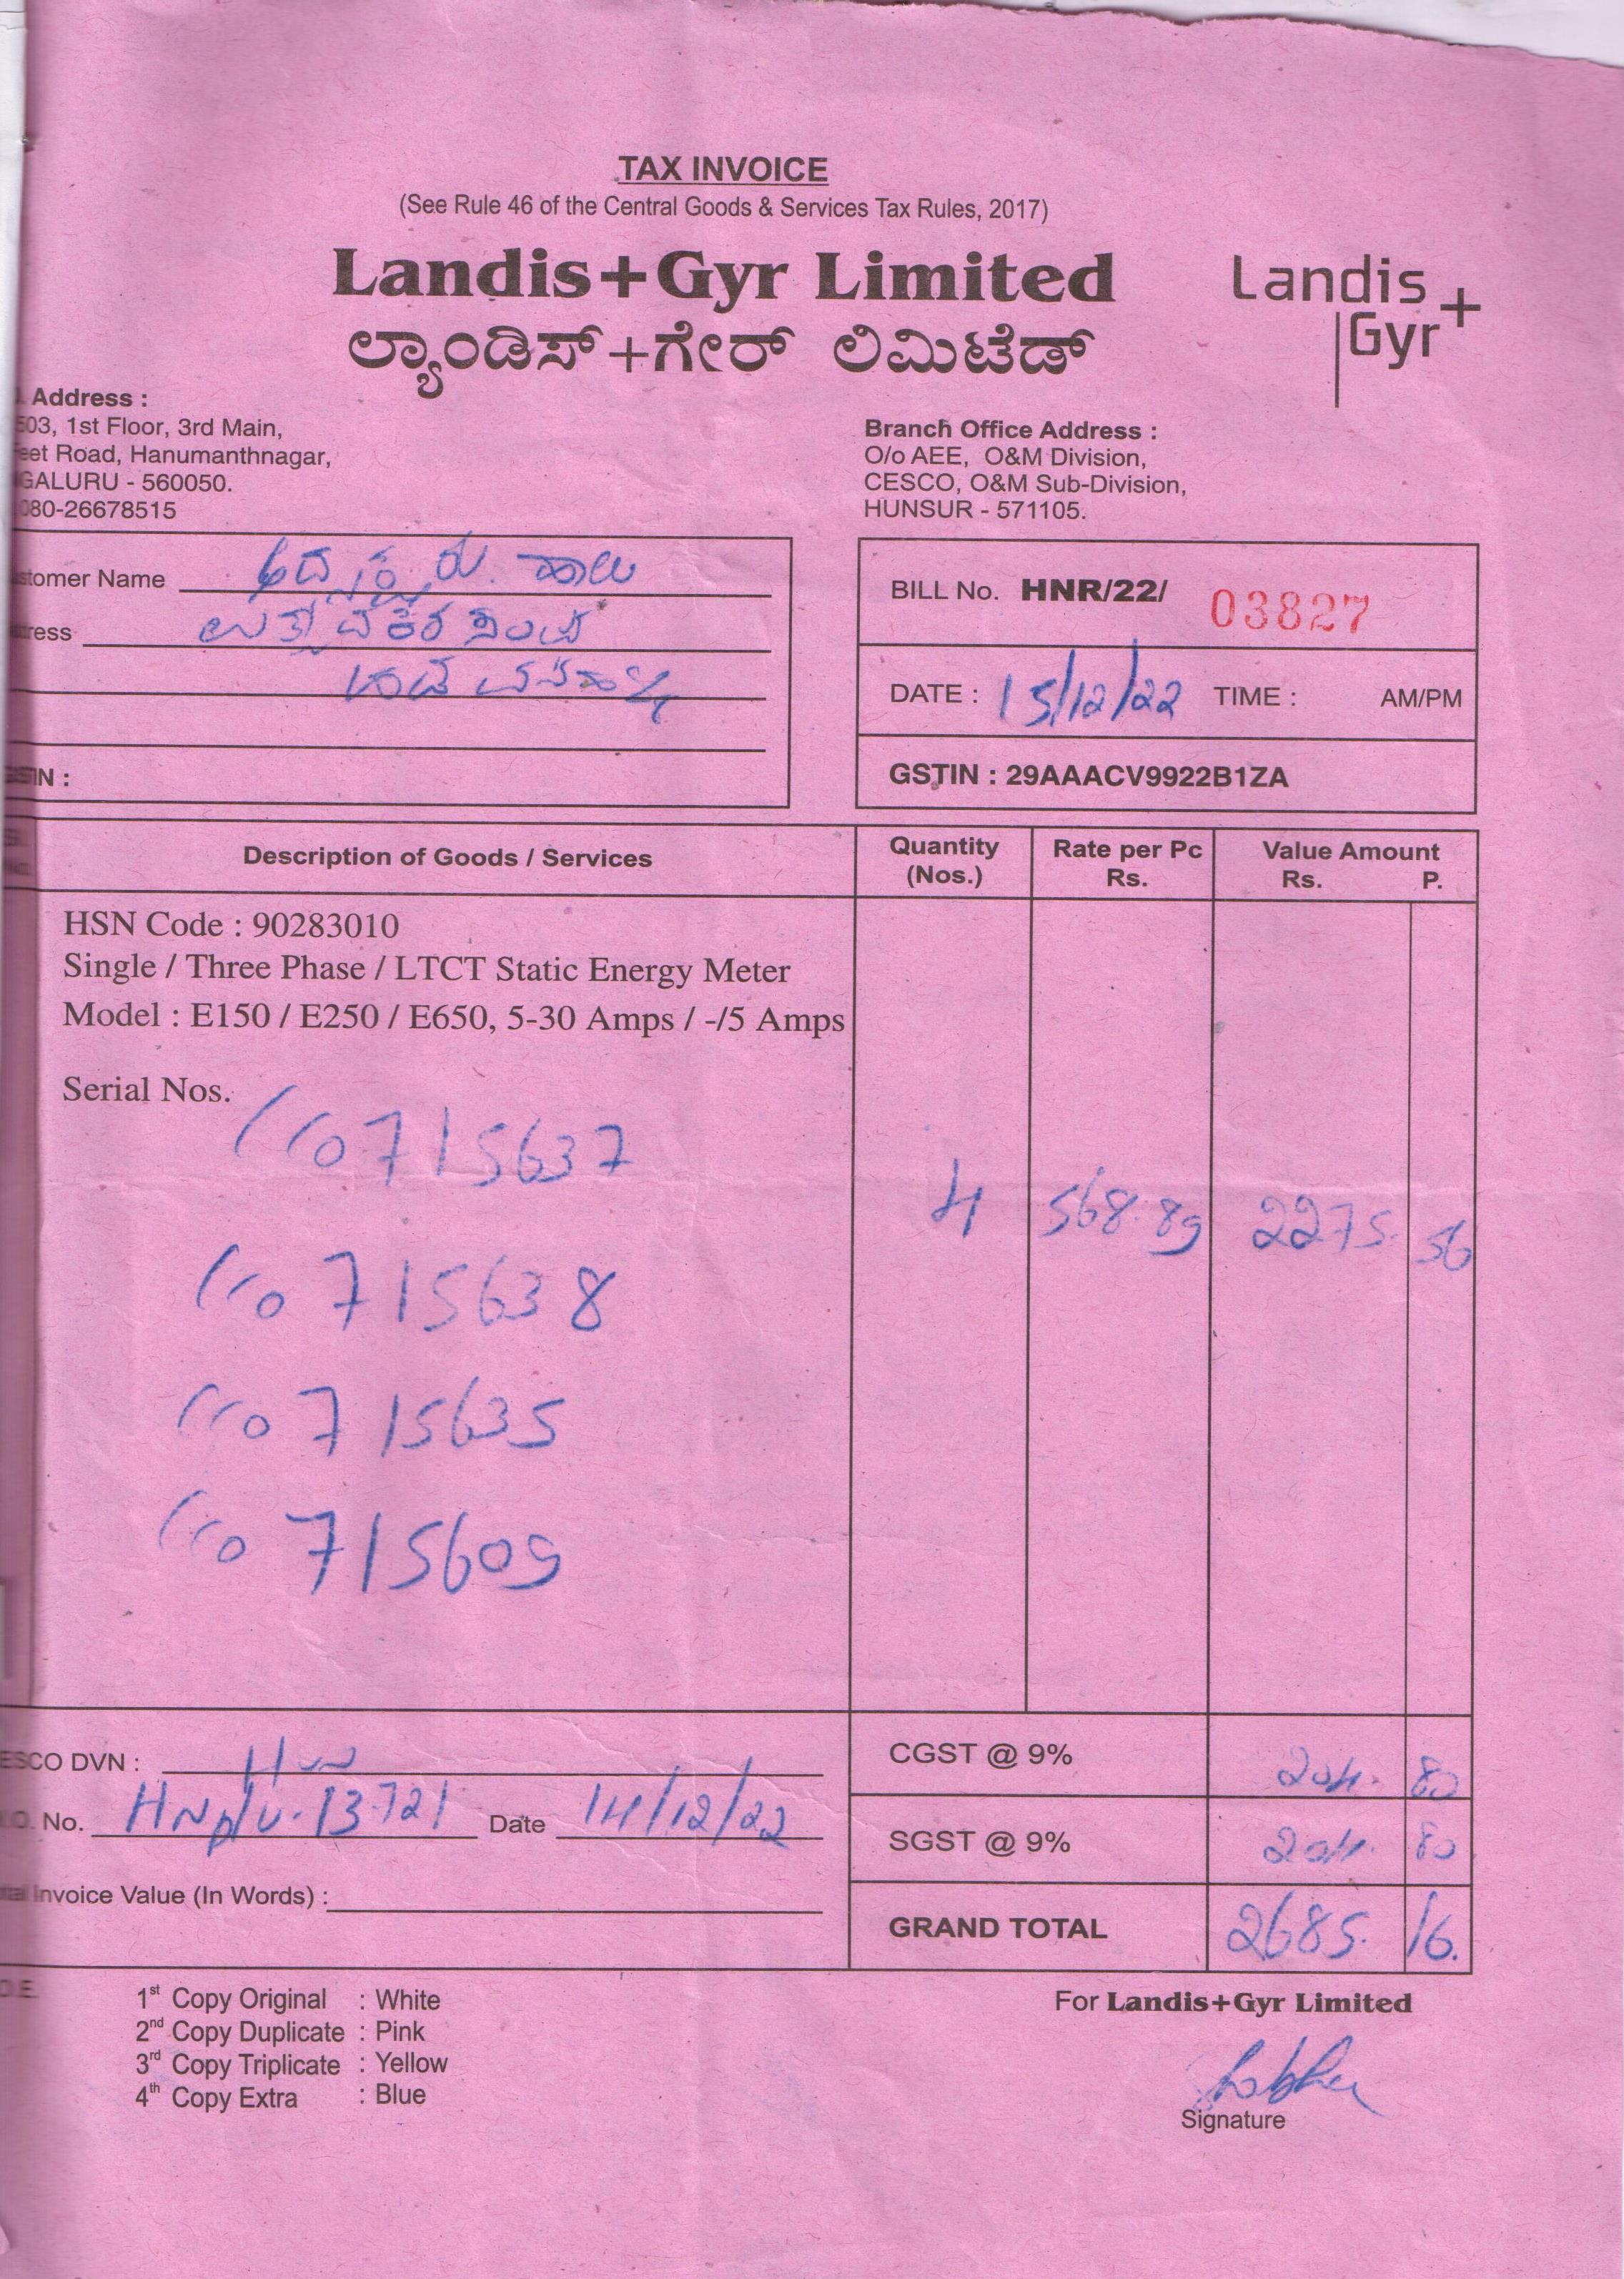 TAX INVOICE
(See Rule 46 of the Central Goods & Services Tax Rules, 2017)
Landis+Gyr Limited
ಲ್ಯಾಂಡಿಸ್+ಗೇರ್ ಲಿಮಿಟೆಡ್
Landis
Gyr+
Address :
503, 1st Floor, 3rd Main,
eet Road, Hanumanthnagar,
GALURU - 560050.
080-26678515
Branch Office Address :
O/o AEE, O&M Division,
CESCO, O&M Sub-Division,
HUNSUR - 571105.
stomer Name ಹಾಲು
ress
IN :
BILL No. HNR/22/ 03827
DATE : 15/12/22 TIME : AM/PM
GSTIN : 29AAACV9922B1ZA
Description of Goods / Services
Quantity (Nos.)
Rate per Pc Rs.
Value Amount Rs. P.
HSN Code : 90283010
Single / Three Phase / LTCT Static Energy Meter
Model : E150 / E250 / E650, 5-30 Amps / -/5 Amps
Serial Nos.
110715637
4 568.89 2275. 56
110715638
110715635
110715609
ESCO DVN :
O. No. 13721 Date 14/12/22
Invoice Value (In Words) :
CGST @ 9% 204. 80
SGST @ 9% 204. 80
GRAND TOTAL 2685. 16.
1st Copy Original : White
2nd Copy Duplicate : Pink
3rd Copy Triplicate : Yellow
4th Copy Extra : Blue
For Landis+Gyr Limited
Signature